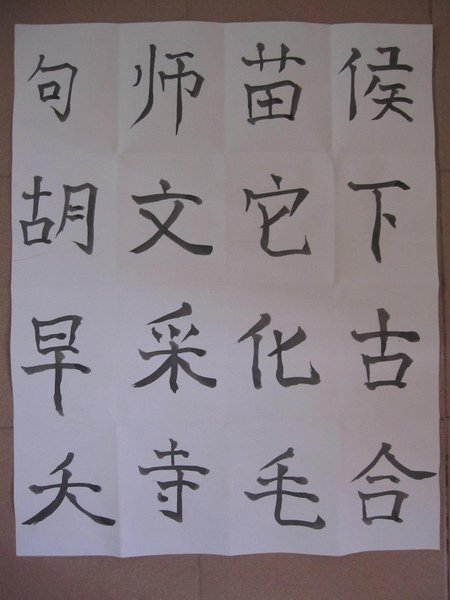 侯下古合
苗它化毛
师文采寺
句胡早夭